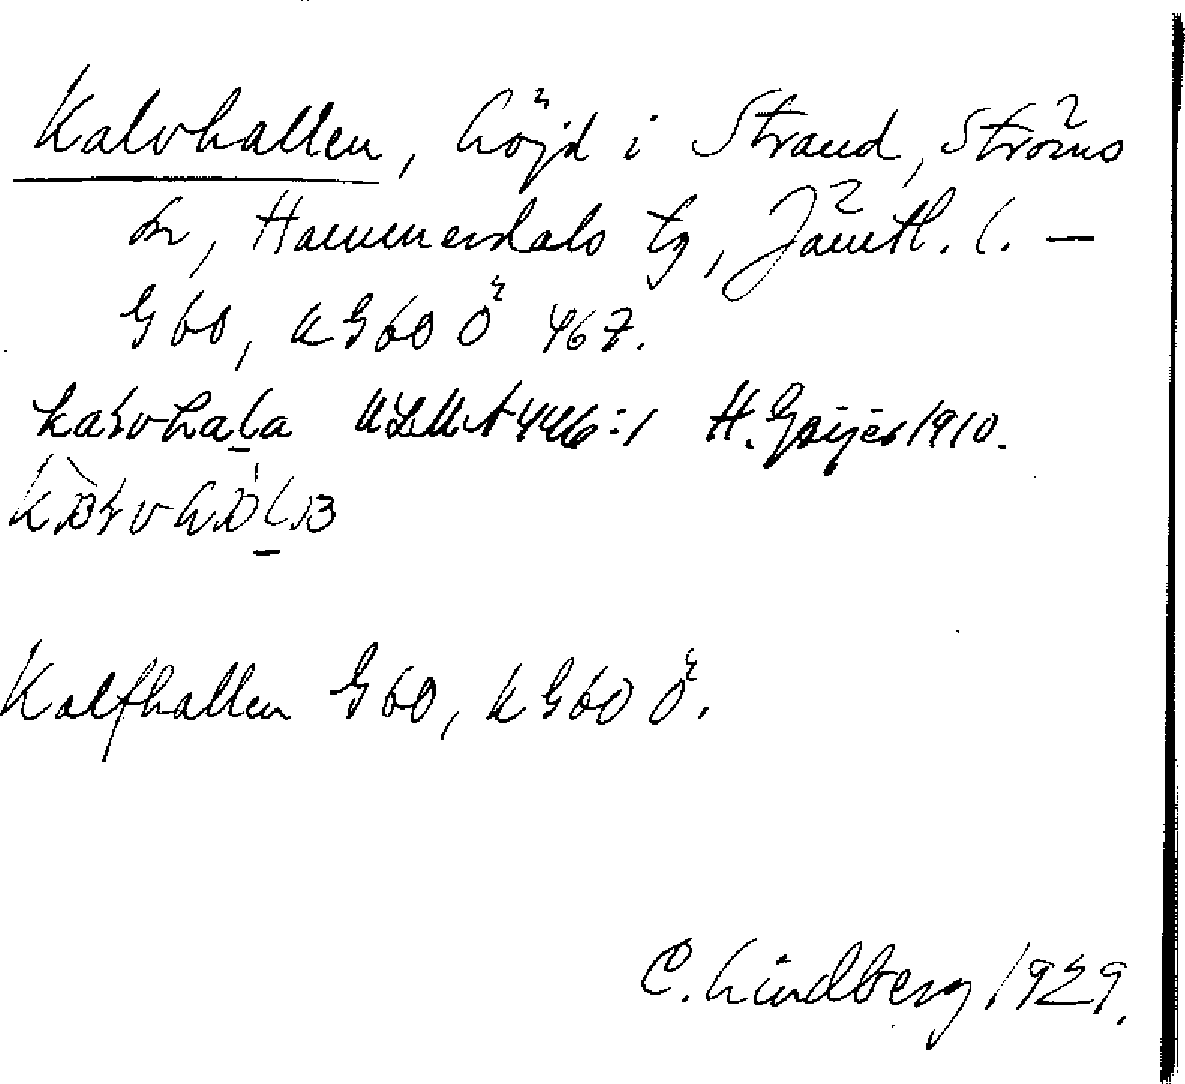 Kalvhallen, höjd i Strand, Ströms
sn, Hammerdals tg, Jämtl. l. —
G 60, k G 60 Ö 467.
ULMA 446:1 H. Geijer 1910.
Kalfhallen G 60, k G 60 Ö.
C. Lindberg 1929.